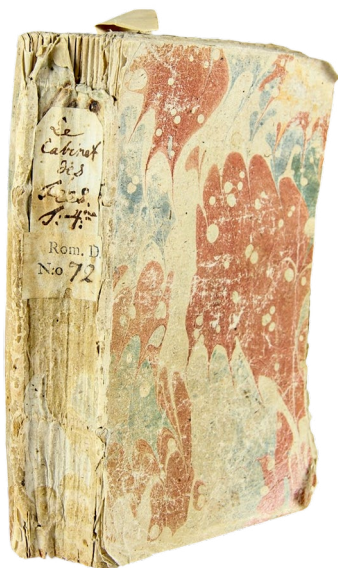 Le
Cabinet
des
Fées.
T. 4.me
Rom. D
N:o 72